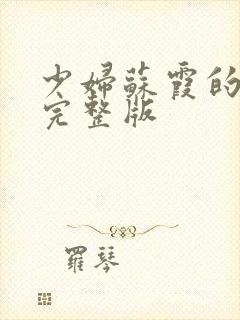 少婦蘇霞的
完整版
羅琴